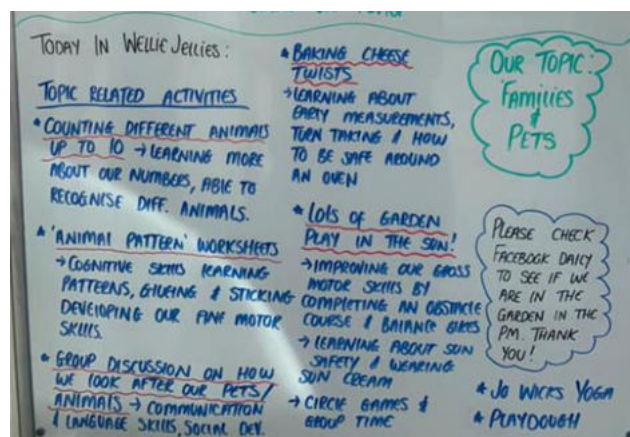 TODAY IN WELLIE JELLIES:
TOPIC RELATED ACTIVITIES
* COUNTING DIFFERENT ANIMALS
UP TO 10 → LEARNING MORE
ABOUT OUR NUMBERS, ABLE TO
RECOGNISE DIFF. ANIMALS.
* 'ANIMAL PATTERN' WORKSHEETS
→ COGNITIVE SKILLS LEARNING
PATTERNS, GLUEING & STICKING
DEVELOPING OUR FINE MOTOR
SKILLS.
* GROUP DISCUSSION ON HOW
WE LOOK AFTER OUR PETS/
ANIMALS → COMMUNICATION
& LANGUAGE SKILLS, SOCIAL DEV.
* BAKING CHEESE
TWISTS
→ LEARNING ABOUT
EARLY MEASUREMENTS,
TURN TAKING & HOW
TO BE SAFE AROUND
AN OVEN
* LOTS OF GARDEN
PLAY IN THE SUN!
→ IMPROVING OUR GROSS
MOTOR SKILLS BY
COMPLETING AN OBSTACLE
COURSE & BALANCE BIKES
→ LEARNING ABOUT SUN
SAFETY & WEARING
SUN CREAM
→ CIRCLE GAMES &
GROUP TIME
OUR TOPIC:
FAMILIES
&
PETS
PLEASE CHECK
FACEBOOK DAILY
TO SEE IF WE
ARE IN THE
GARDEN IN THE
PM. THANK
YOU!
* JO WICKS YOGA
* PLAYDOUGH